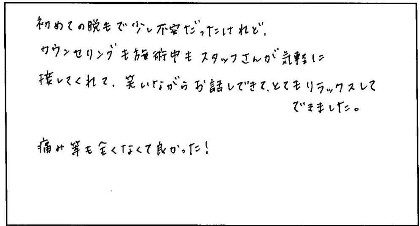 初めての脱もで少し不安だったけれど、
カウンセリングも施術中もスタッフさんが気軽に
接してくれて、笑いながらお話しできて、とてもリラックスして
できました。
痛み等も全くなくて良かった!